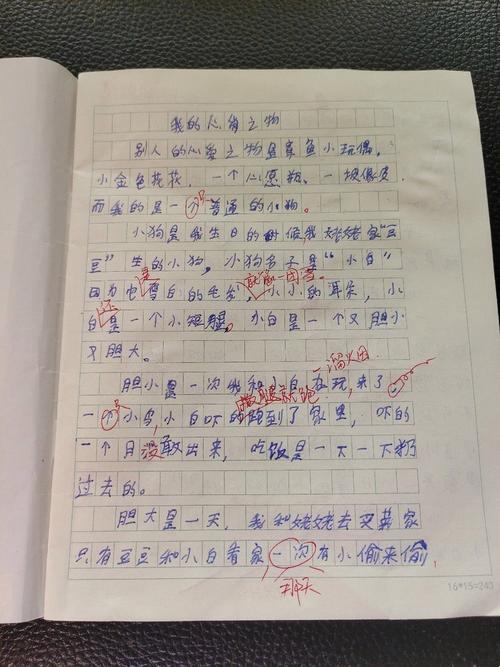 我的心爱之物
别人的心爱之物是章鱼小玩偶,
小金色花花,一个心愿瓶、一
而我的是一个只普通的小狗。
小狗是我生日的时候我姥姥家"豆
豆"生的小狗,小狗名子是"小白"
就像一团雪
因为它是雪白的毛发,小小的耳朵,小
白还是一个小短腿。小白是一个又胆小
又胆大。
一溜火团
胆小是一次我和小白在玩,来了
撒腿就跑
一个只小鸟,小白吓的跑到了家里,吓的
一个月没敢出来,吃饭是一下一下扔
过去的。
胆大是一天,我和姥姥去买菜家
只有豆豆和小白看家,一次有小偷来偷,
那天
16*15=240